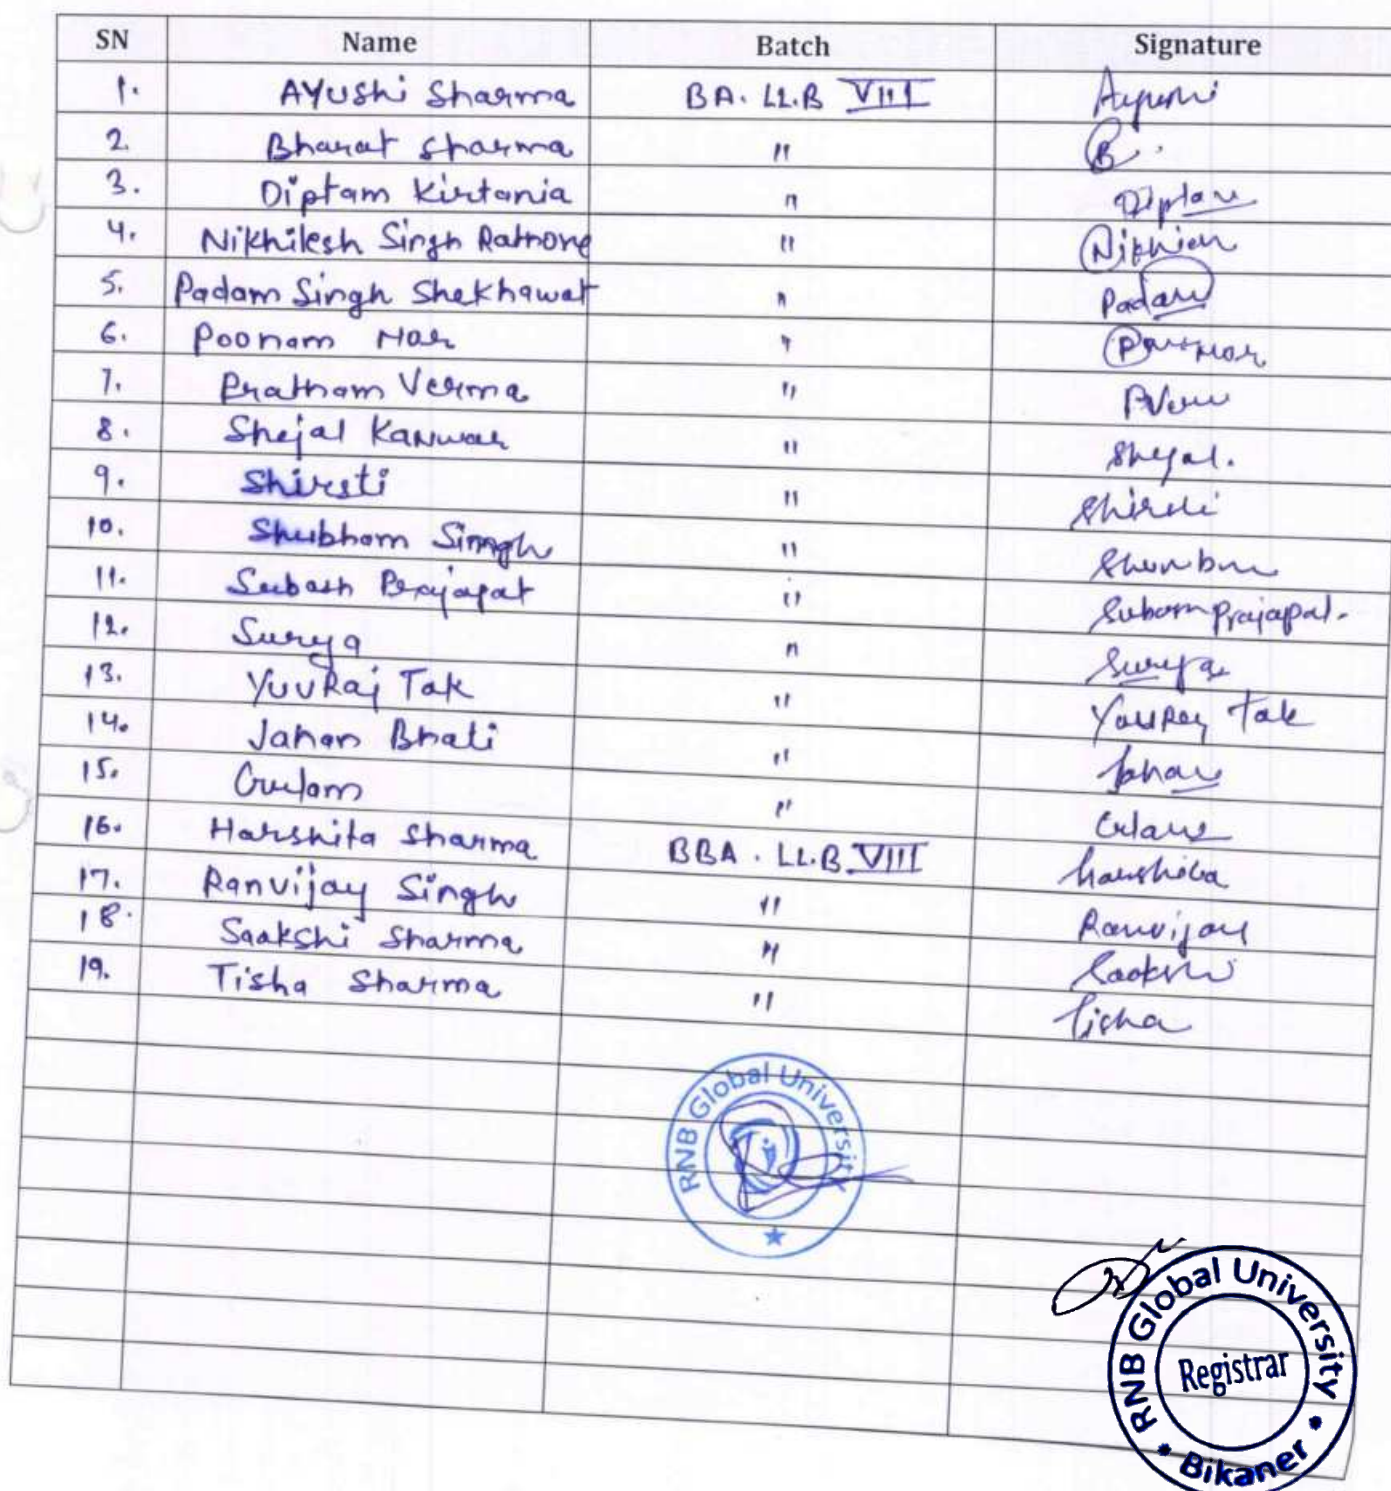 SN Name Batch Signature
1. AYushi Sharma BA. LL.B VIII Ayushi
2. Bharat Sharma " B.
3. Diptam Kirtania " Diptam
4. Nikhilesh Singh Rathore "
5. Padam Singh Shekhawat " Padam
6. Poonam Nar "
7. Pratham Verma "
8. Shejal Kanwar " Shejal.
9. Shirsti "
10. Shubham Singh "
11. Subash Prajapat "
12. Surya " Surya
13. YuvRaj Tak " Tak
14. Jahan Bhati " Jahan
15. Gulam "
16. Harshita Sharma BBA. LL.B VIII Harshita
17. Ranvijay Singh " Ranvijay
18. Saakshi Sharma " Saakshi
19. Tisha Sharma " Tisha
RNB Global University
RNB Global University
Registrar
Bikaner